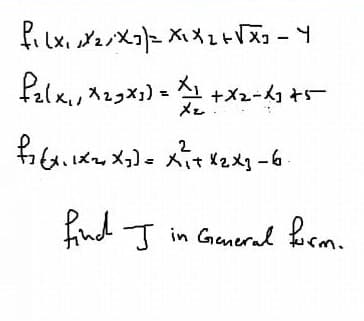 f₁(x₁,x₂,x₃)= x₁x₂+√x₃ - 4
f₂(x₁,x₂,x₃) = x₁/x₂ +x₂-x₃ +5
f₃(x₁,x₂,x₃) = x₁²+ x₂x₃ -6
find J in General form.